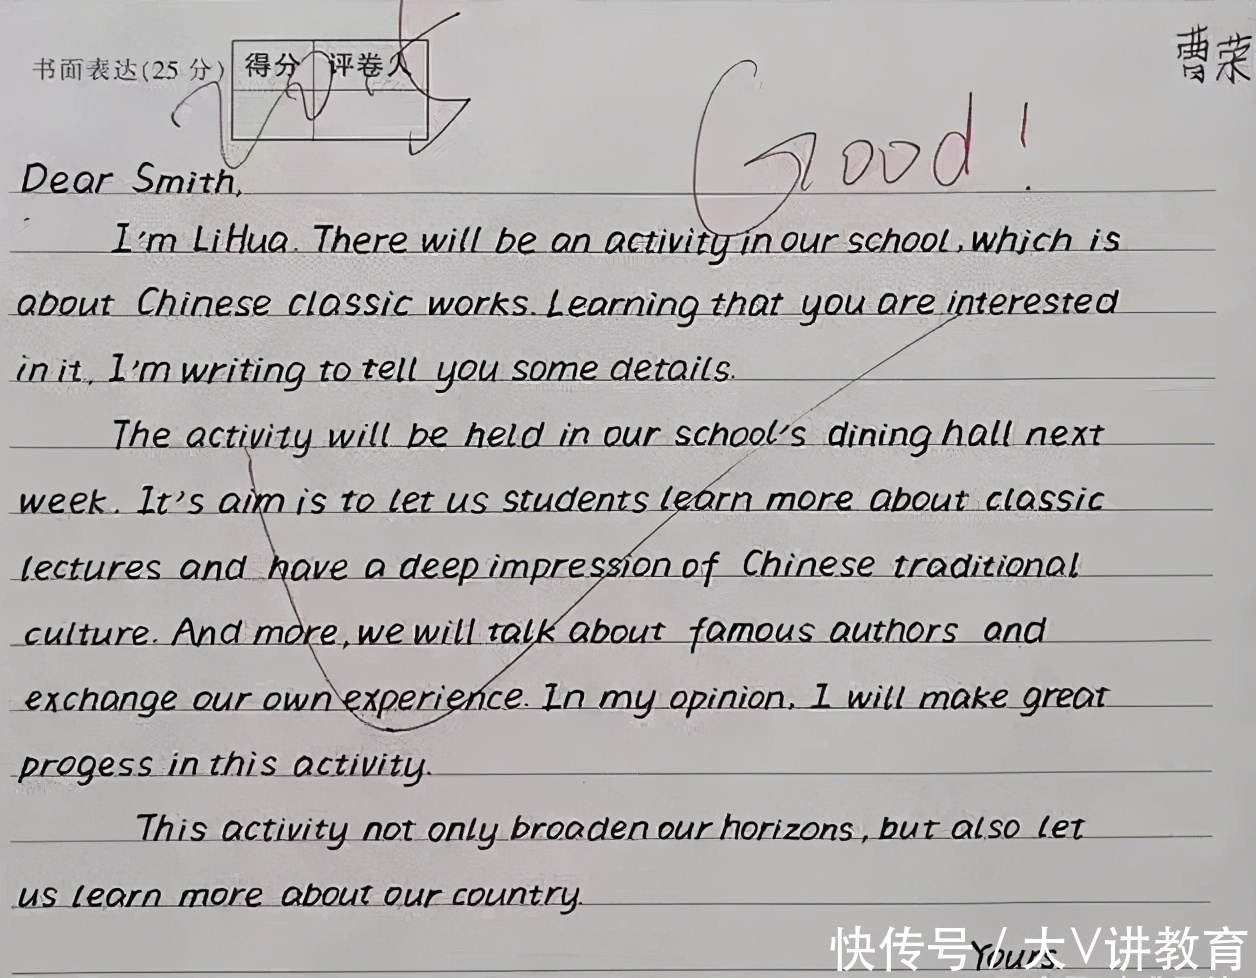 曹荣
书面表达(25分) 得分 评卷人
Good!
Dear Smith,
I'm LiHua. There will be an activity in our school, which is
about Chinese classic works. Learning that you are interested
in it, I'm writing to tell you some details.
The activity will be held in our school's dining hall next
week. It's aim is to let us students learn more about classic
lectures and have a deep impression of Chinese traditional
culture. And more, we will talk about famous authors and
exchange our own experience. In my opinion, I will make great
progess in this activity.
This activity not only broaden our horizons, but also let
us learn more about our country.
Yours,
快传号 / 大V讲教育